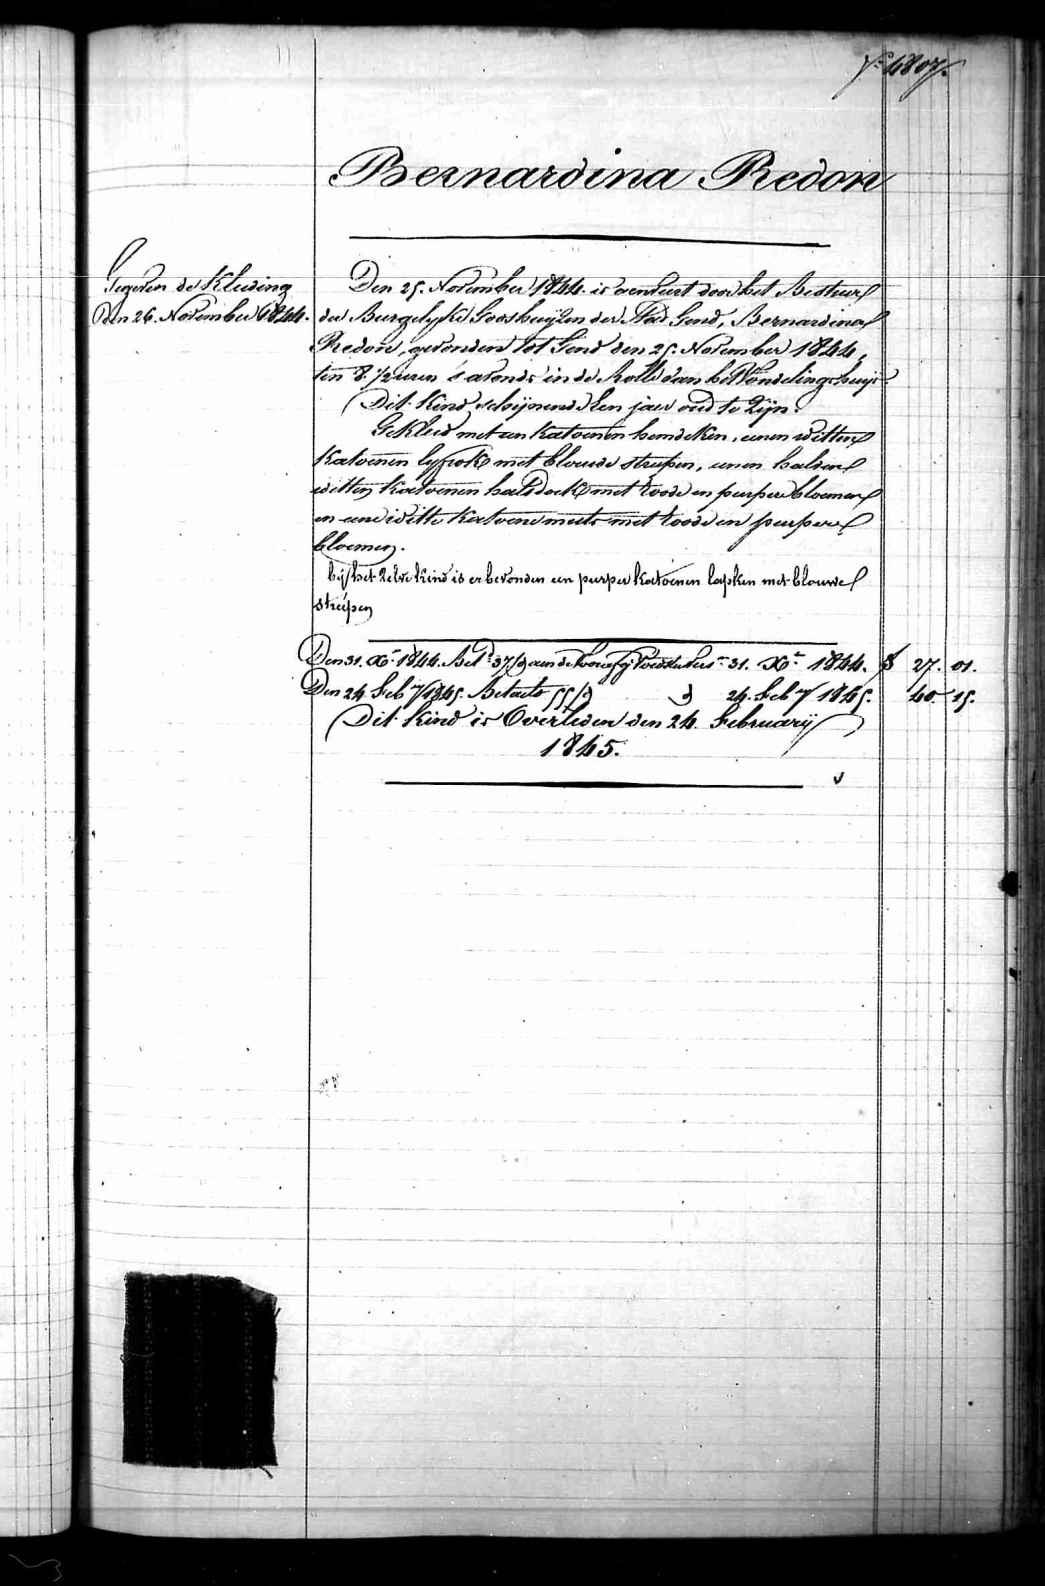 f° 4807.
Bernardina Redon
Gegeven de Kleeding
Den 26. November 1844.
Den 25. November 1844. is aenveert door het Bestuer
der Burgelyke Godshuyzen der Stad Gend, Bernardina
Redon, gevonden tot Gend den 25. November 1844,
ten 8. 1/2 uren s'avonds in de Rolle van het Vondelingshuys
Dit Kind schijnende Een jaer oud te Zijn.
Gekleed met een Katoenen hemdeken, eenen witten
Katoenen lyfrok met blouwe streepen, eenen halven
witten Katoenen halsdoek met roode en purper bloemen
en eene witte Katoene muts met roode en purpere
bloemen.
bij het Zelve kind is er bevonden een purper katoenen lapken met blouwe
streepen
Den 31. Xr 1844. Bett 37 aen de 31. Xr 1844. 27. 01.
Den 24 Feby 1845. Betaelt 55 24. Feby 1845. 40. 15.
Dit Kind is Overleden den 24. February
1845.